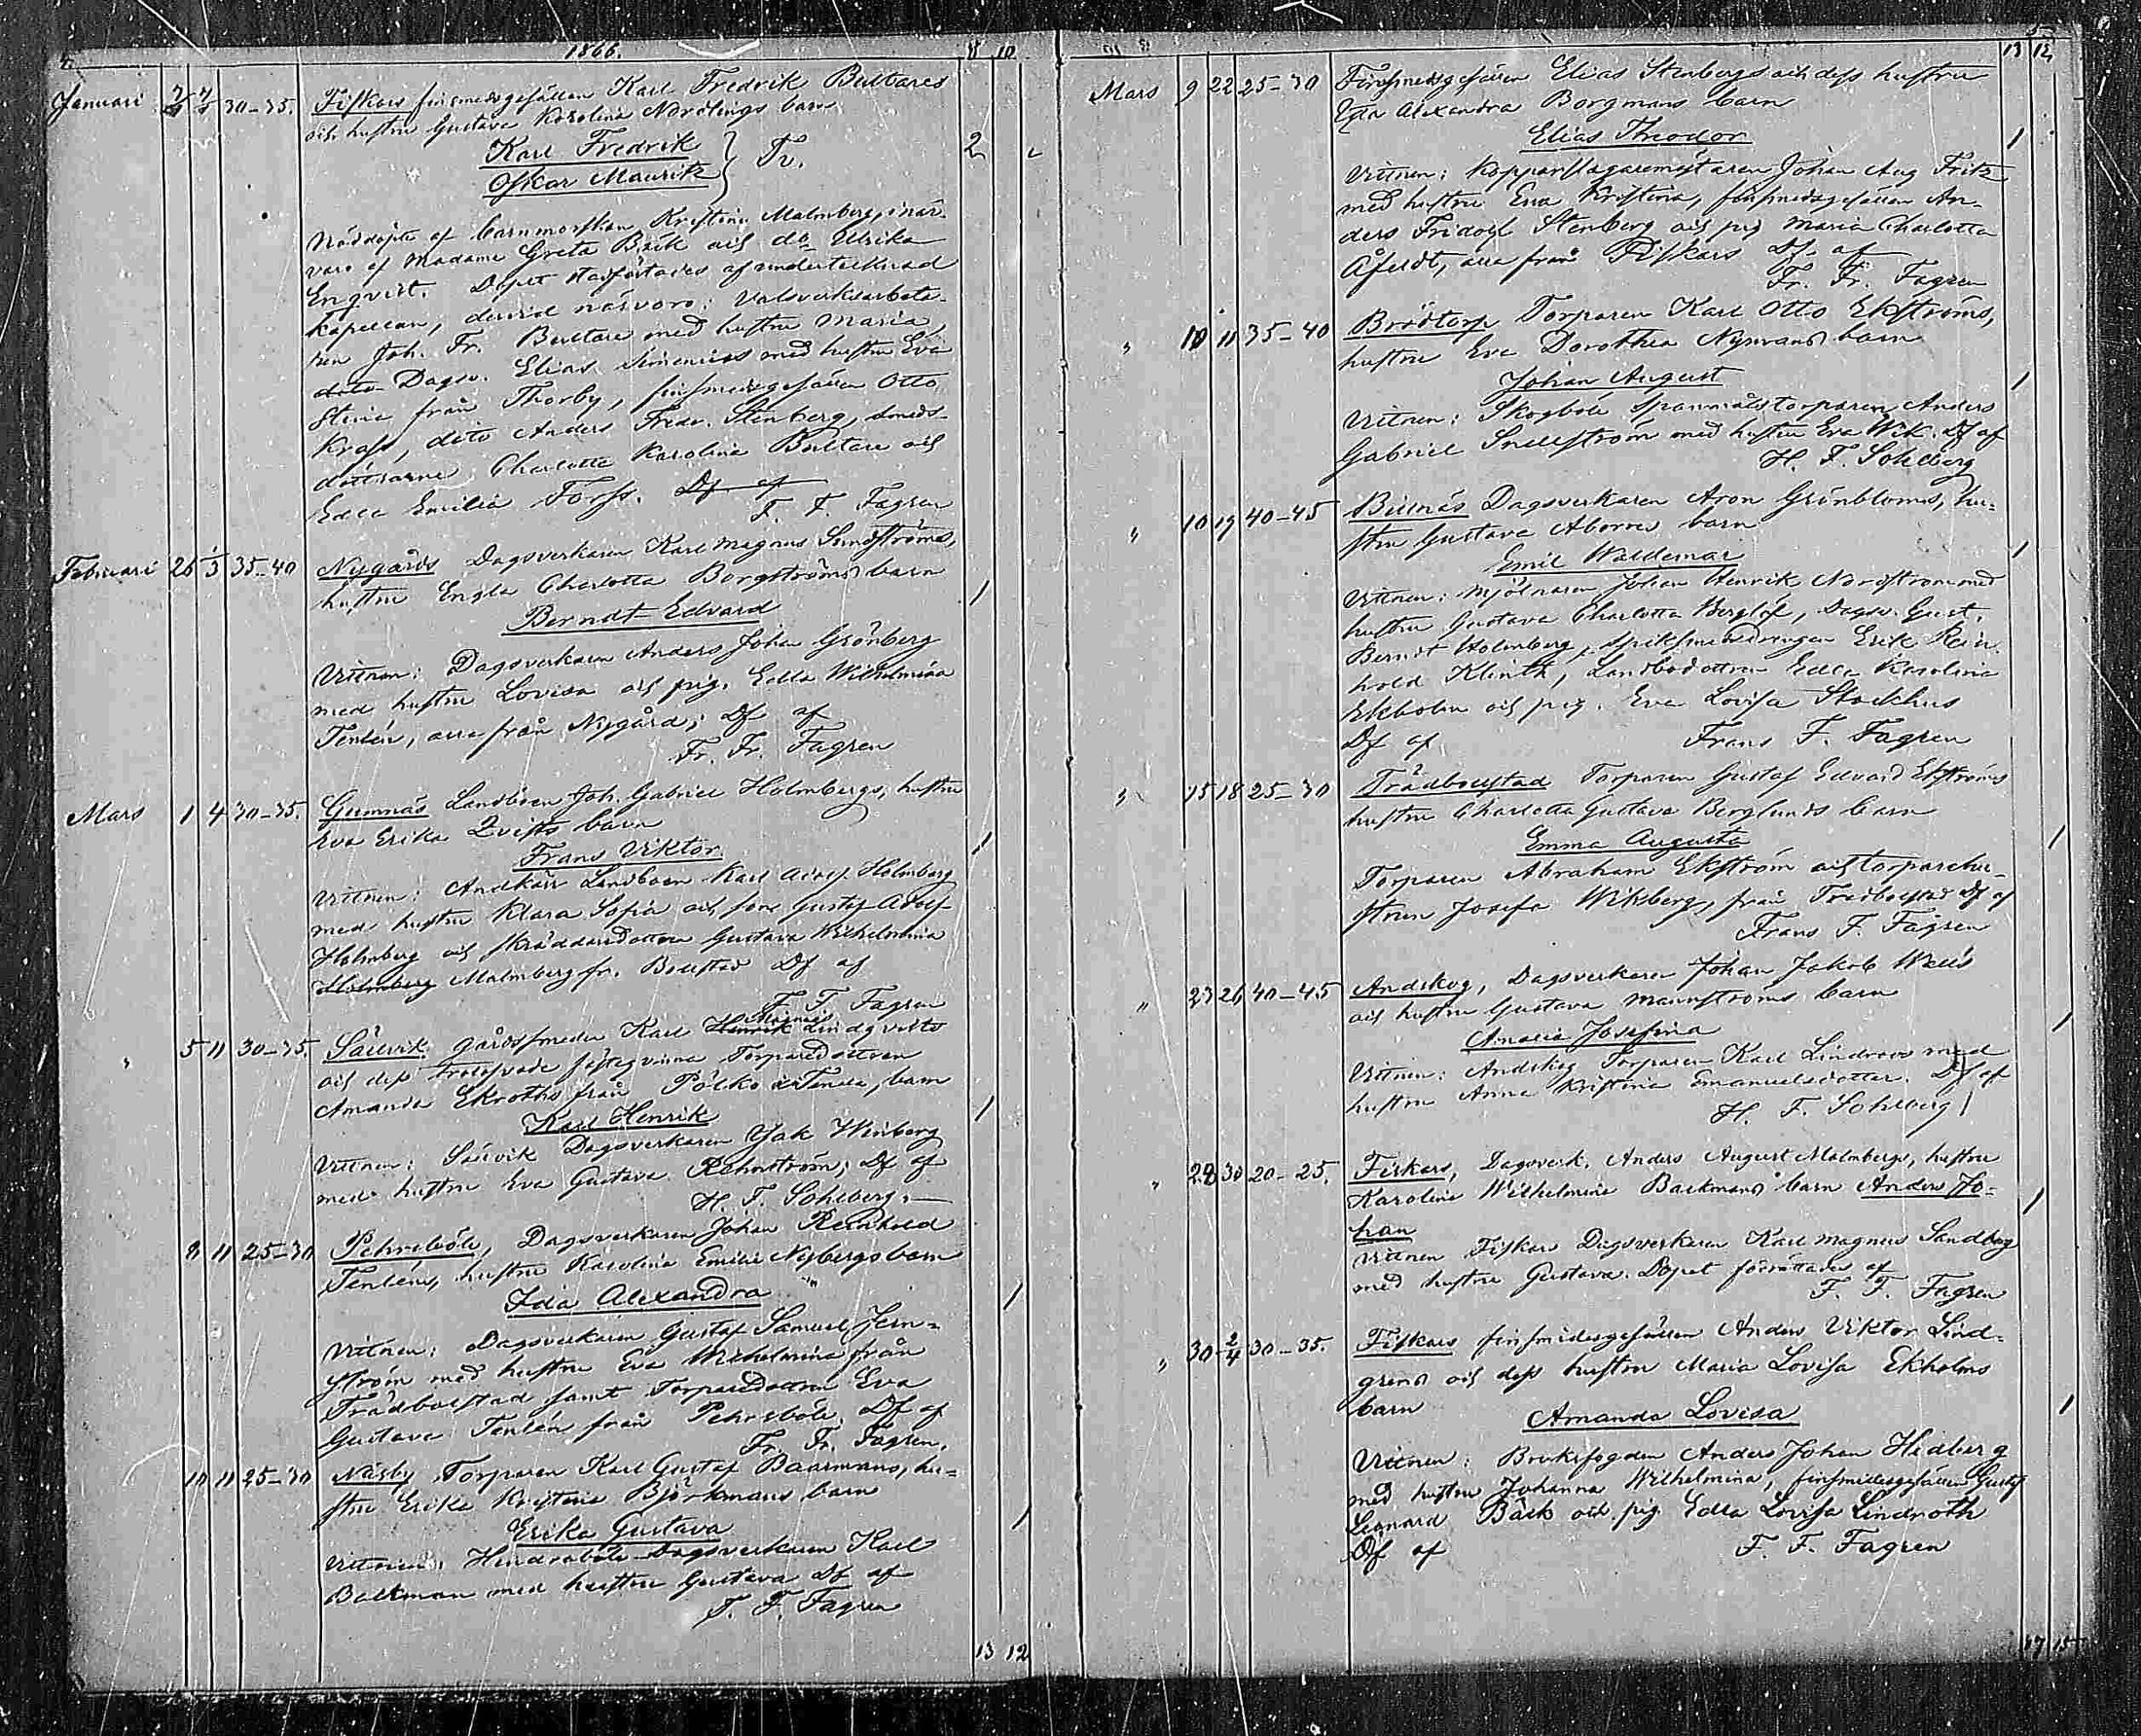 4. 1866. 8 10
Januari 30-35. Fiskars finsmedsgesällen Karl Fredrik Bultares
och hustru Gustava Karolina Nordlings barn
Karl Fredrik
Oskar Mauritz } Tv. 2
Nöddöpte af barnmorskan Kristina Malmberg, i när-
varo af Madame Greta Bäck och do Ulrika
Enqvist. Dopet stadfästades af undertecknad
kapellan, dervid närvoro: Valsverksarbeta-
ren Joh. Fr. Bultare med hustru Maria,
Dagsv. Elias Simenius med hustru Eva
Stina från Thorby, finsmedsgesällen Otto
Kraft, dito Anders Fredr. Stenberg, smeds-
döttrarne Charlotta Karolina Bultare och
Edla Emilia Forss. Df af
F. F. Fagren
Februari 26 1/3 35-40 Nygårds Dagsverkaren Karl Magnus Sundströms,
hustru Engla Charlotta Borgströms barn
Berndt Edvard 1
Vittnen: Dagsverkaren Anders Johan Grönberg
med hustru Lovisa och pig. Edla Wilhelmina
Tenlén, alla från Nygård; Df af
Fr. Fr. Fagren
Mars 1 4 30-35. Gumnäs Landboen Joh. Gabriel Holmbergs, hustru
Eva Erika Qvists barn
Frans Viktor 1
Vittnen: Andkärr Landboen Karl Adolf Holmberg
med hustru Klara Sofia och son Gustaf Adolf
Holmberg och skräddaredottren Gustava Wilhelmina
Holmberg Malmberg fr. Bollstad Df af
F F Fagren
" 5 11 30-35. Sällvik gårdssmeden Karl Henrik Magnus Lindqvists
och dess trolofvade fästeqvinna Torparedottren
Amanda Ekroths från Pölkö i Tenala, barn
Karl Henrik 1
Vittnen: Sällvik Dagsverkaren Isak Winberg
med hustru Eva Gustava Rehnström; Df af
H. F. Sohlberg.
8 11 25-30 Pehrsböle, Dagsverkaren Johan Reinhold
Tenléns, hustru Karolina Emilie Nybergs barn
Ida Alexandra 1
Vittnen: Dagsverkaren Gustaf Samuel Jern-
ström med hustru Eva Wilhelmina från
Trädbolstad samt Torparedottren Eva
Gustava Tenlén från Pehrsböle. Df af
Fr. Fr. Fagren.
10 11 25-30 Näsby Torparen Karl Gustaf Baarmans, hu-
stru Erika Kristina Björkmans barn
Erika Gustava 1
Vittnen: Hindraböle Dagsverkaren Karl
Backman med hustru Gustava Df af
F. F. Fagren
13 12
5. 13 12
Mars 9 22 25-30 Finsmedsgesällen Elias Stenbergs och dess hustru
Eda Alexandra Borgmans barn
Elias Theodor 1
Vittnen: Kopparslagaremästaren Johan Aug Fritz
med hustru Eva Kristina, finsmedsgesällen An-
ders Fridolf Stenberg och pig Maria Charlotta
Åfeldt, alla från Fiskars Df. af
Fr. Fr. Fagren
" 10 11 35-40 Brödtorp Torparen Karl Otto Ekströms,
hustru Eva Dorothea Nymans barn
Johan August 1
Vittnen: Skogböle Spannmålstorparen Anders
Gabriel Snellström med hustru Eva Wik. Df af
H. F. Sohlberg
" 10 19 40-45 Billnäs Dagsverkaren Aron Grönbloms, hu-
stru Gustava Aborres barn
Emil Waldemar 1
Vittnen: Mjölnaren Johan Henrik Nordström med
hustru Gustava Charlotta Berglöf, Dagsv. Gust.
Berndt Holmberg, spiksmedsdrengen Erik Rein-
hold Klinth, Landbodottren Edla Karolina
Ekbolm och pig. Eva Lovisa Stockhus
Df af Frans F. Fagren
" 15 18 25-30 Trädbolstad Torparen Gustaf Edvard Ekströms
hustru Charlotta Gustava Berglunds barn
Emma Augusta 1
Torparen Abraham Ekström och torparehu-
strun Josefa Wikberg, från Trädbolstad Df af
Frans F. Fagren
" 23 26 40-45 Andskog, Dagsverkaren Johan Jakob Wells
och hustru Gustava Mannströms barn
Amalia Josefina 1
Vittnen: Andskog Torparen Karl Lindroos med
hustru Anna Kristina Emanuelsdotter. Df af
H. F. Sohlberg
" 28 30 20-25. Fiskars, Dagsverk. Anders August Malmbergs, hustru
Karolina Wilhelmina Backmans barn Anders Jo-
han 1
Vittnen Fiskars Dagsverkaren Karl Magnus Sandberg
med hustru Gustava. Dopet förrättades af
F. F. Fagren
" 30 2/4 30-35. Fiskars finsmidesgesällen Anders Viktor Lind-
grens och dess hustru Maria Lovisa Ekholms
barn Amanda Lovisa 1
Vittnen: Bruksfogden Anders Johan Hedberg
med hustru Johanna Wilhelmina, finsmidesgesällen Gustaf
Leonard Bäck och pig. Edla Lovisa Lindroth
Df af F. F. Fagren
17 15